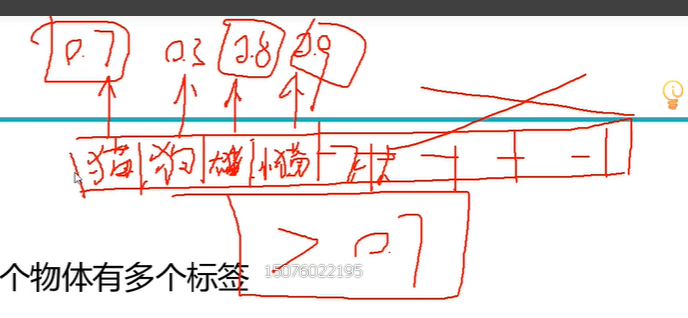 0.7 0.3 0.8 0.9
猫 狗 大猫 小猫
> 0.7
个物体有多个标签 15076022195